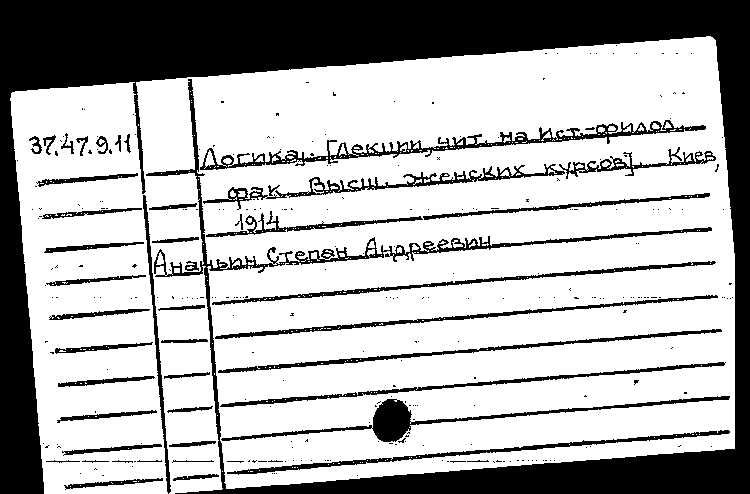 37.47.9.11
Логика. [Лекции, чит. на Ист.-филол.
фак. Высш. женских курсов]. Киев,
1914
Ананьин, Степан Андреевич